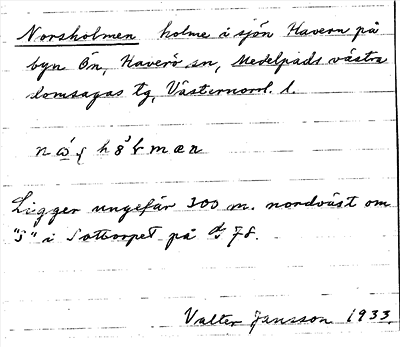 Norsholmen holme i sjön Havern på
byn Ön, Haverö sn, Medelpads västra
domsagas tg, Västernorrl. l.
Ligger ungefär 300 m. nordväst om
"S" i Sottorpet på
Valter Jansson 1933.